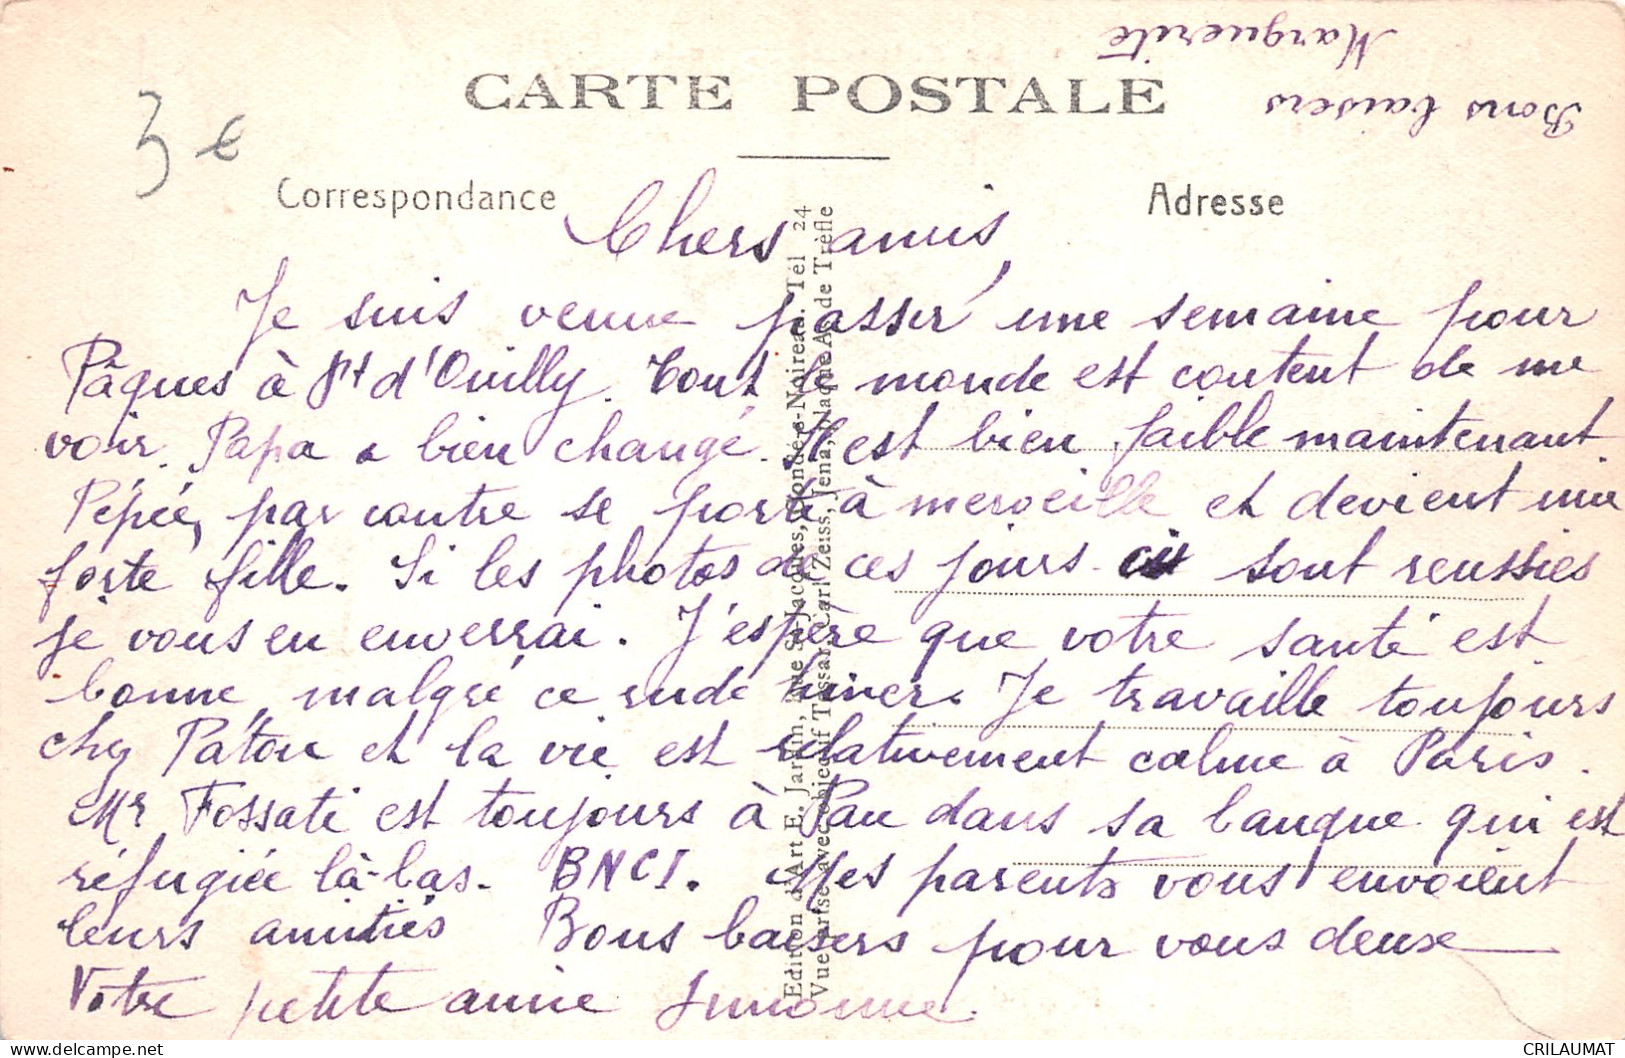 Bons baisers
Marguerite
CARTE POSTALE
3 €
Correspondance
Adresse
Chers amis,
Je suis venue passer une semaine pour
Pâques à Pt d'Ouilly. Tout le monde est content de me
voir. Papa a bien changé. Il est bien faible maintenant.
Pépée, par contre se porte à merveille et devient une
forte fille. Si les photos de ces jours-ci sont reussies
je vous en enverrai. J'espère que votre santé est
bonne, malgré ce rude hiver. Je travaille toujours
chez Paton et la vie est relativement calme à Paris.
Mr Fossati est toujours à Pau dans sa banque qui est
réfugiée là-bas. BNCI. Mes parents vous envoient
leurs amitiés Bons baisers pour vous deux
Votre petite amie Simonne.
Edition d'Art E. Jardin, Rue St-Jacques, Condé-s-Noireau. Tél 24
Vue prise avec objectif Tessar, Carl Zeiss, Jena, plaque As de Trèfle
CRILAUMAT